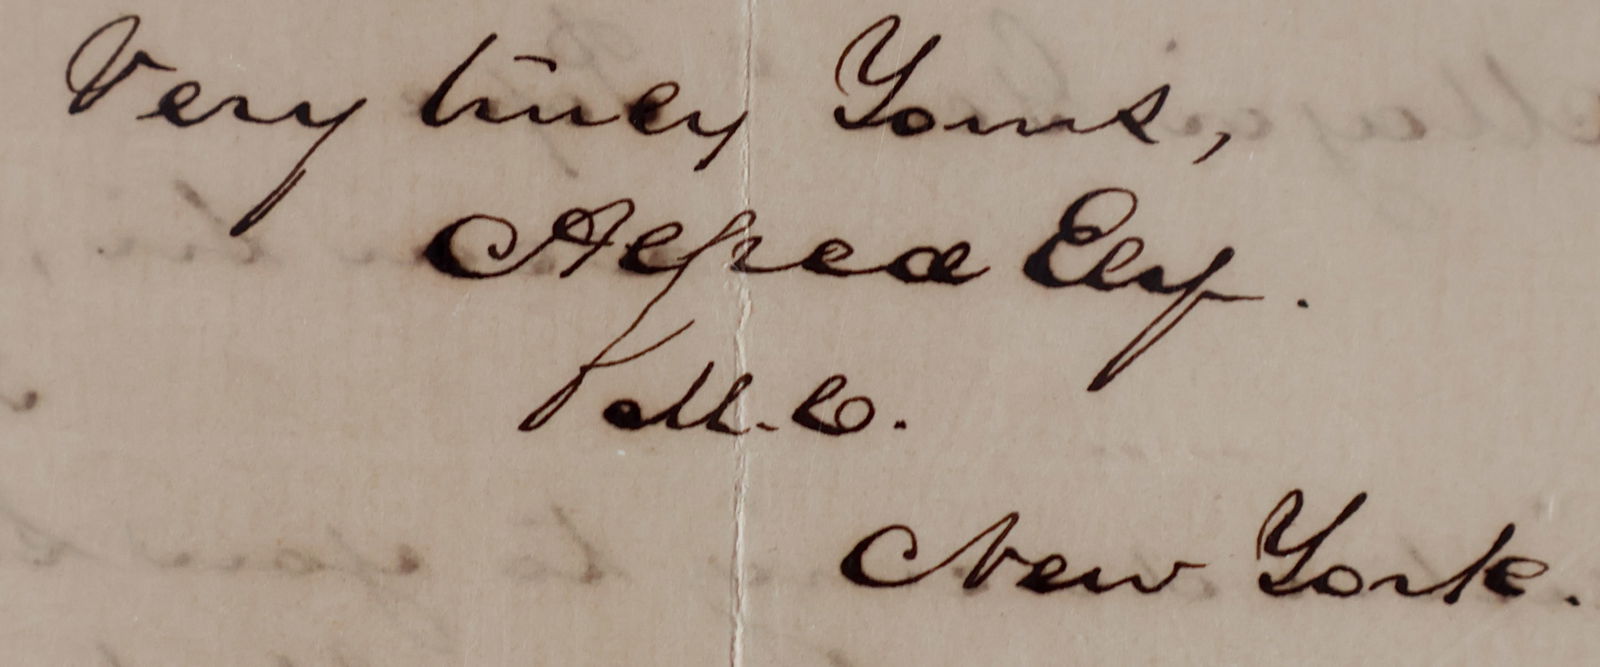 Very truly Yours,
Alfred Ely.
M.C.
New York.